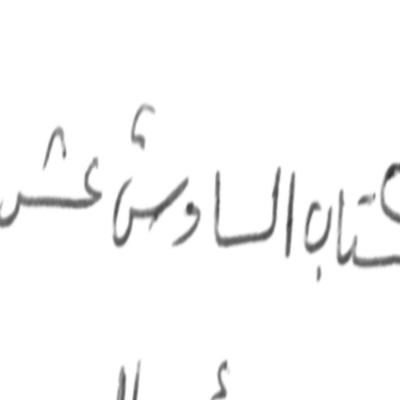 كتاب السادس عشر